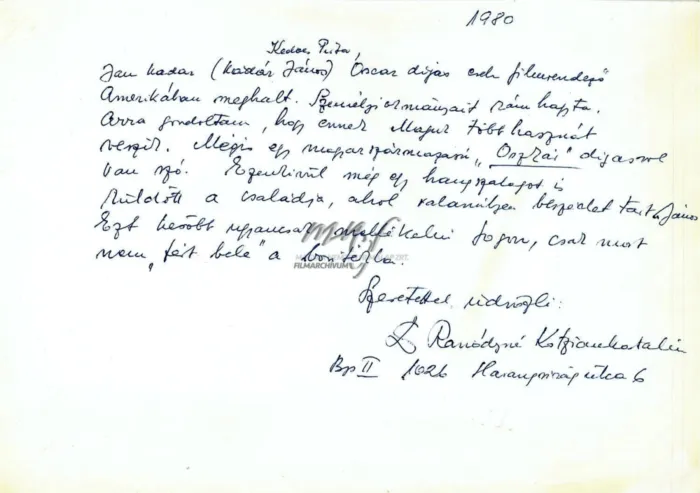 1980
Kedves Rita,
Jan Kadar (Kádár János) Oscar díjas cseh filmrendező
Amerikában meghalt. Személyi okmányait rám hagyta.
Arra gondoltam, hogy ennek Maguk több hasznát
veszik. Mégis egy magyar származású "Oszkár" díjasról
van szó. Ezenkívül még egy hangszalagot is
küldött a családja, ahol valamilyen beszédet tart János
Ezt később ugyancsak mellékelni fogom, csak most
nem "fért bele" a borítékba.
MANDA
FILMARCHÍVUM
Szeretettel üdvözli:
Ranódyné Kotzian Katalin
Bp II 1026 Harangvirág utca 6